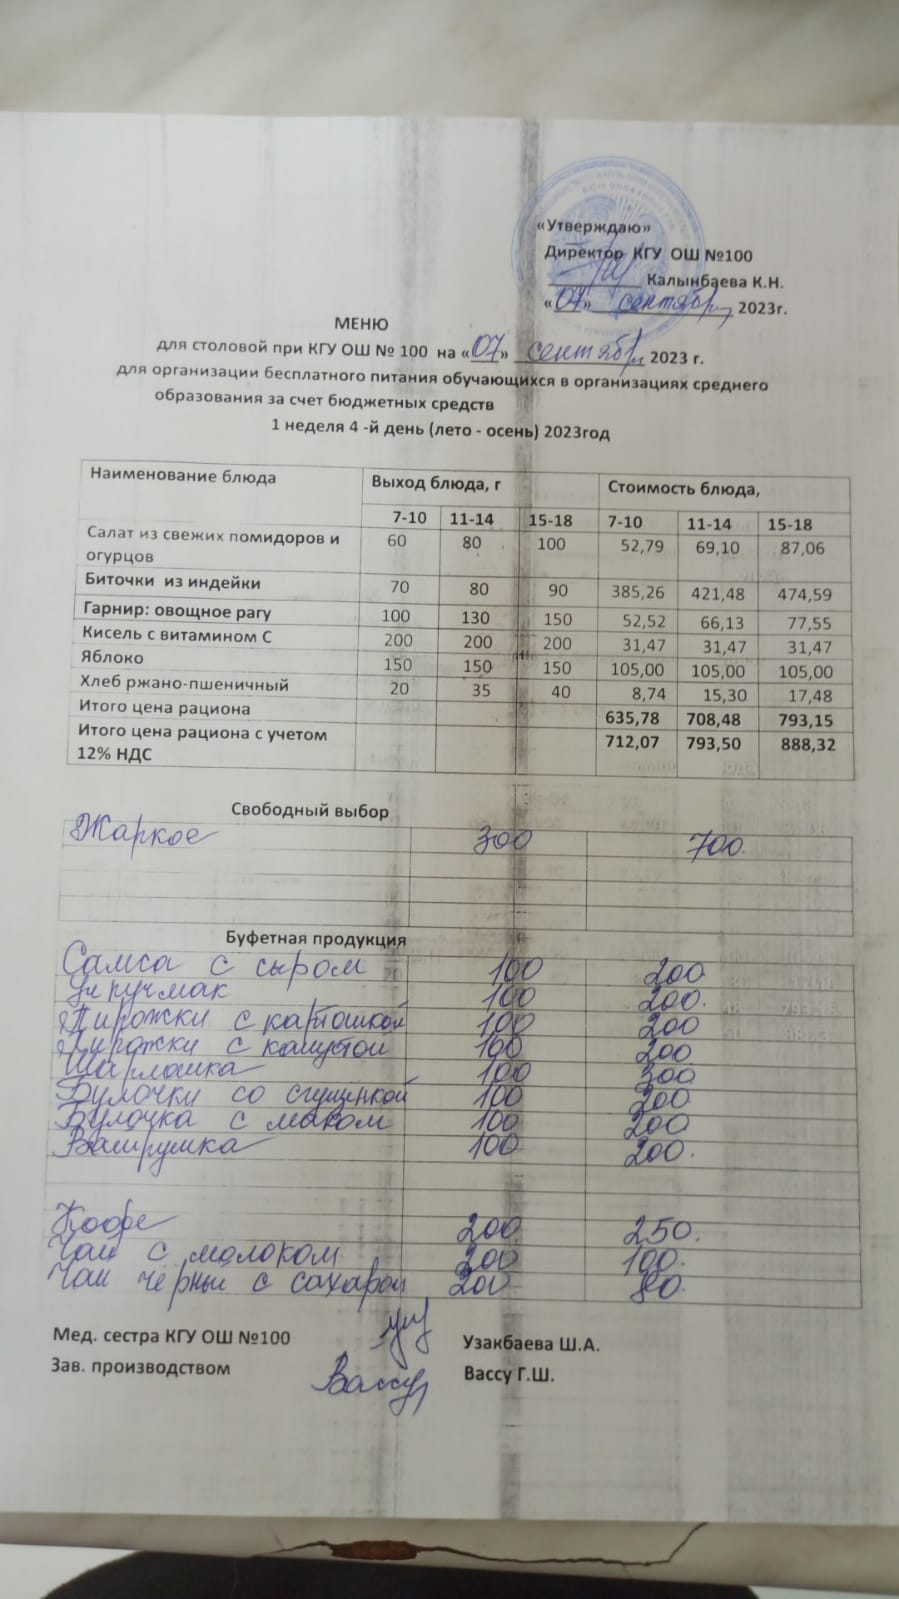 «Утверждаю»
Директор КГУ ОШ №100
Калынбаева К.Н.
«07» сентября 2023г.
МЕНЮ
для столовой при КГУ ОШ № 100 на «07» сентября 2023 г.
для организации бесплатного питания обучающихся в организациях среднего
образования за счет бюджетных средств
1 неделя 4 -й день (лето - осень) 2023год
Наименование блюда Выход блюда, г Стоимость блюда,
7-10 11-14 15-18 7-10 11-14 15-18
Салат из свежих помидоров и 60 80 100 52,79 69,10 87,06
огурцов
Биточки из индейки 70 80 90 385,26 421,48 474,59
Гарнир: овощное рагу 100 130 150 52,52 66,13 77,55
Кисель с витамином С 200 200 200 31,47 31,47 31,47
Яблоко 150 150 150 105,00 105,00 105,00
Хлеб ржано-пшеничный 20 35 40 8,74 15,30 17,48
Итого цена рациона 635,78 708,48 793,15
Итого цена рациона с учетом 712,07 793,50 888,32
12% НДС
Свободный выбор
Жаркое 300 700.
Буфетная продукция
Самса с сыром 100 200
Учпучмак 100 200.
Пирожки с картошкой 100 200
Пирожки с капустой 100 200
Шарлашка 100 300
Булочки со сгущенкой 100 200
Булочка с маком 100 200
Ватрушка 100 200.
Кофе 200 250.
Чай с молоком 200 100.
Чай черный с сахаром 200 80.
Мед. сестра КГУ ОШ №100 Узакбаева Ш.А.
Зав. производством Вассу Вассу Г.Ш.